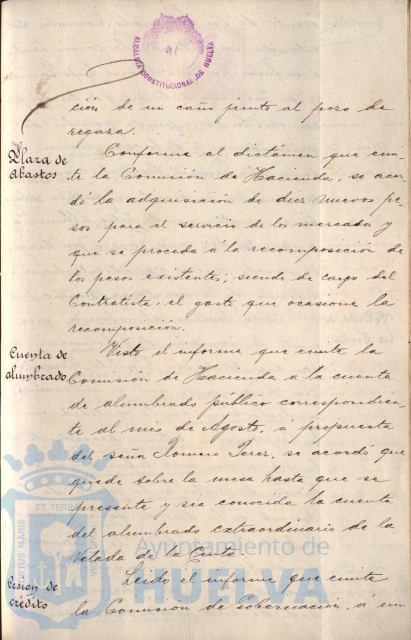 ALCALDIA CONSTITUCIONAL DE HUELVA
ción de un caño junto al pozo de
regaza.
Plaza de
abastos
Conforme al dictámen que emi-
te la Comisión de Hacienda, se acor-
dó la adquisición de diez nuevos pe-
sos para el servicio de los mercados y
que se proceda á la recomposición de
los pesos existentes; siendo de cargo del
Contratista, el gasto que ocasione la
recomposición.
Cuenta de
alumbrado
Visto el informe que emite la
Comisión de Hacienda á la cuenta
de alumbrado público correspondien-
te al mes de Agosto, a propuesta
del señor Romero Perez, se acordó que
quede sobre la mesa hasta que se
presente y sea conocida la cuenta
del alumbrado extraordinario de la
Velada de la Cinta.
Cesion de
crédito
Leido el informe que emite
la Comisión de Gobernación, á un
Ayuntamiento de
HUELVA